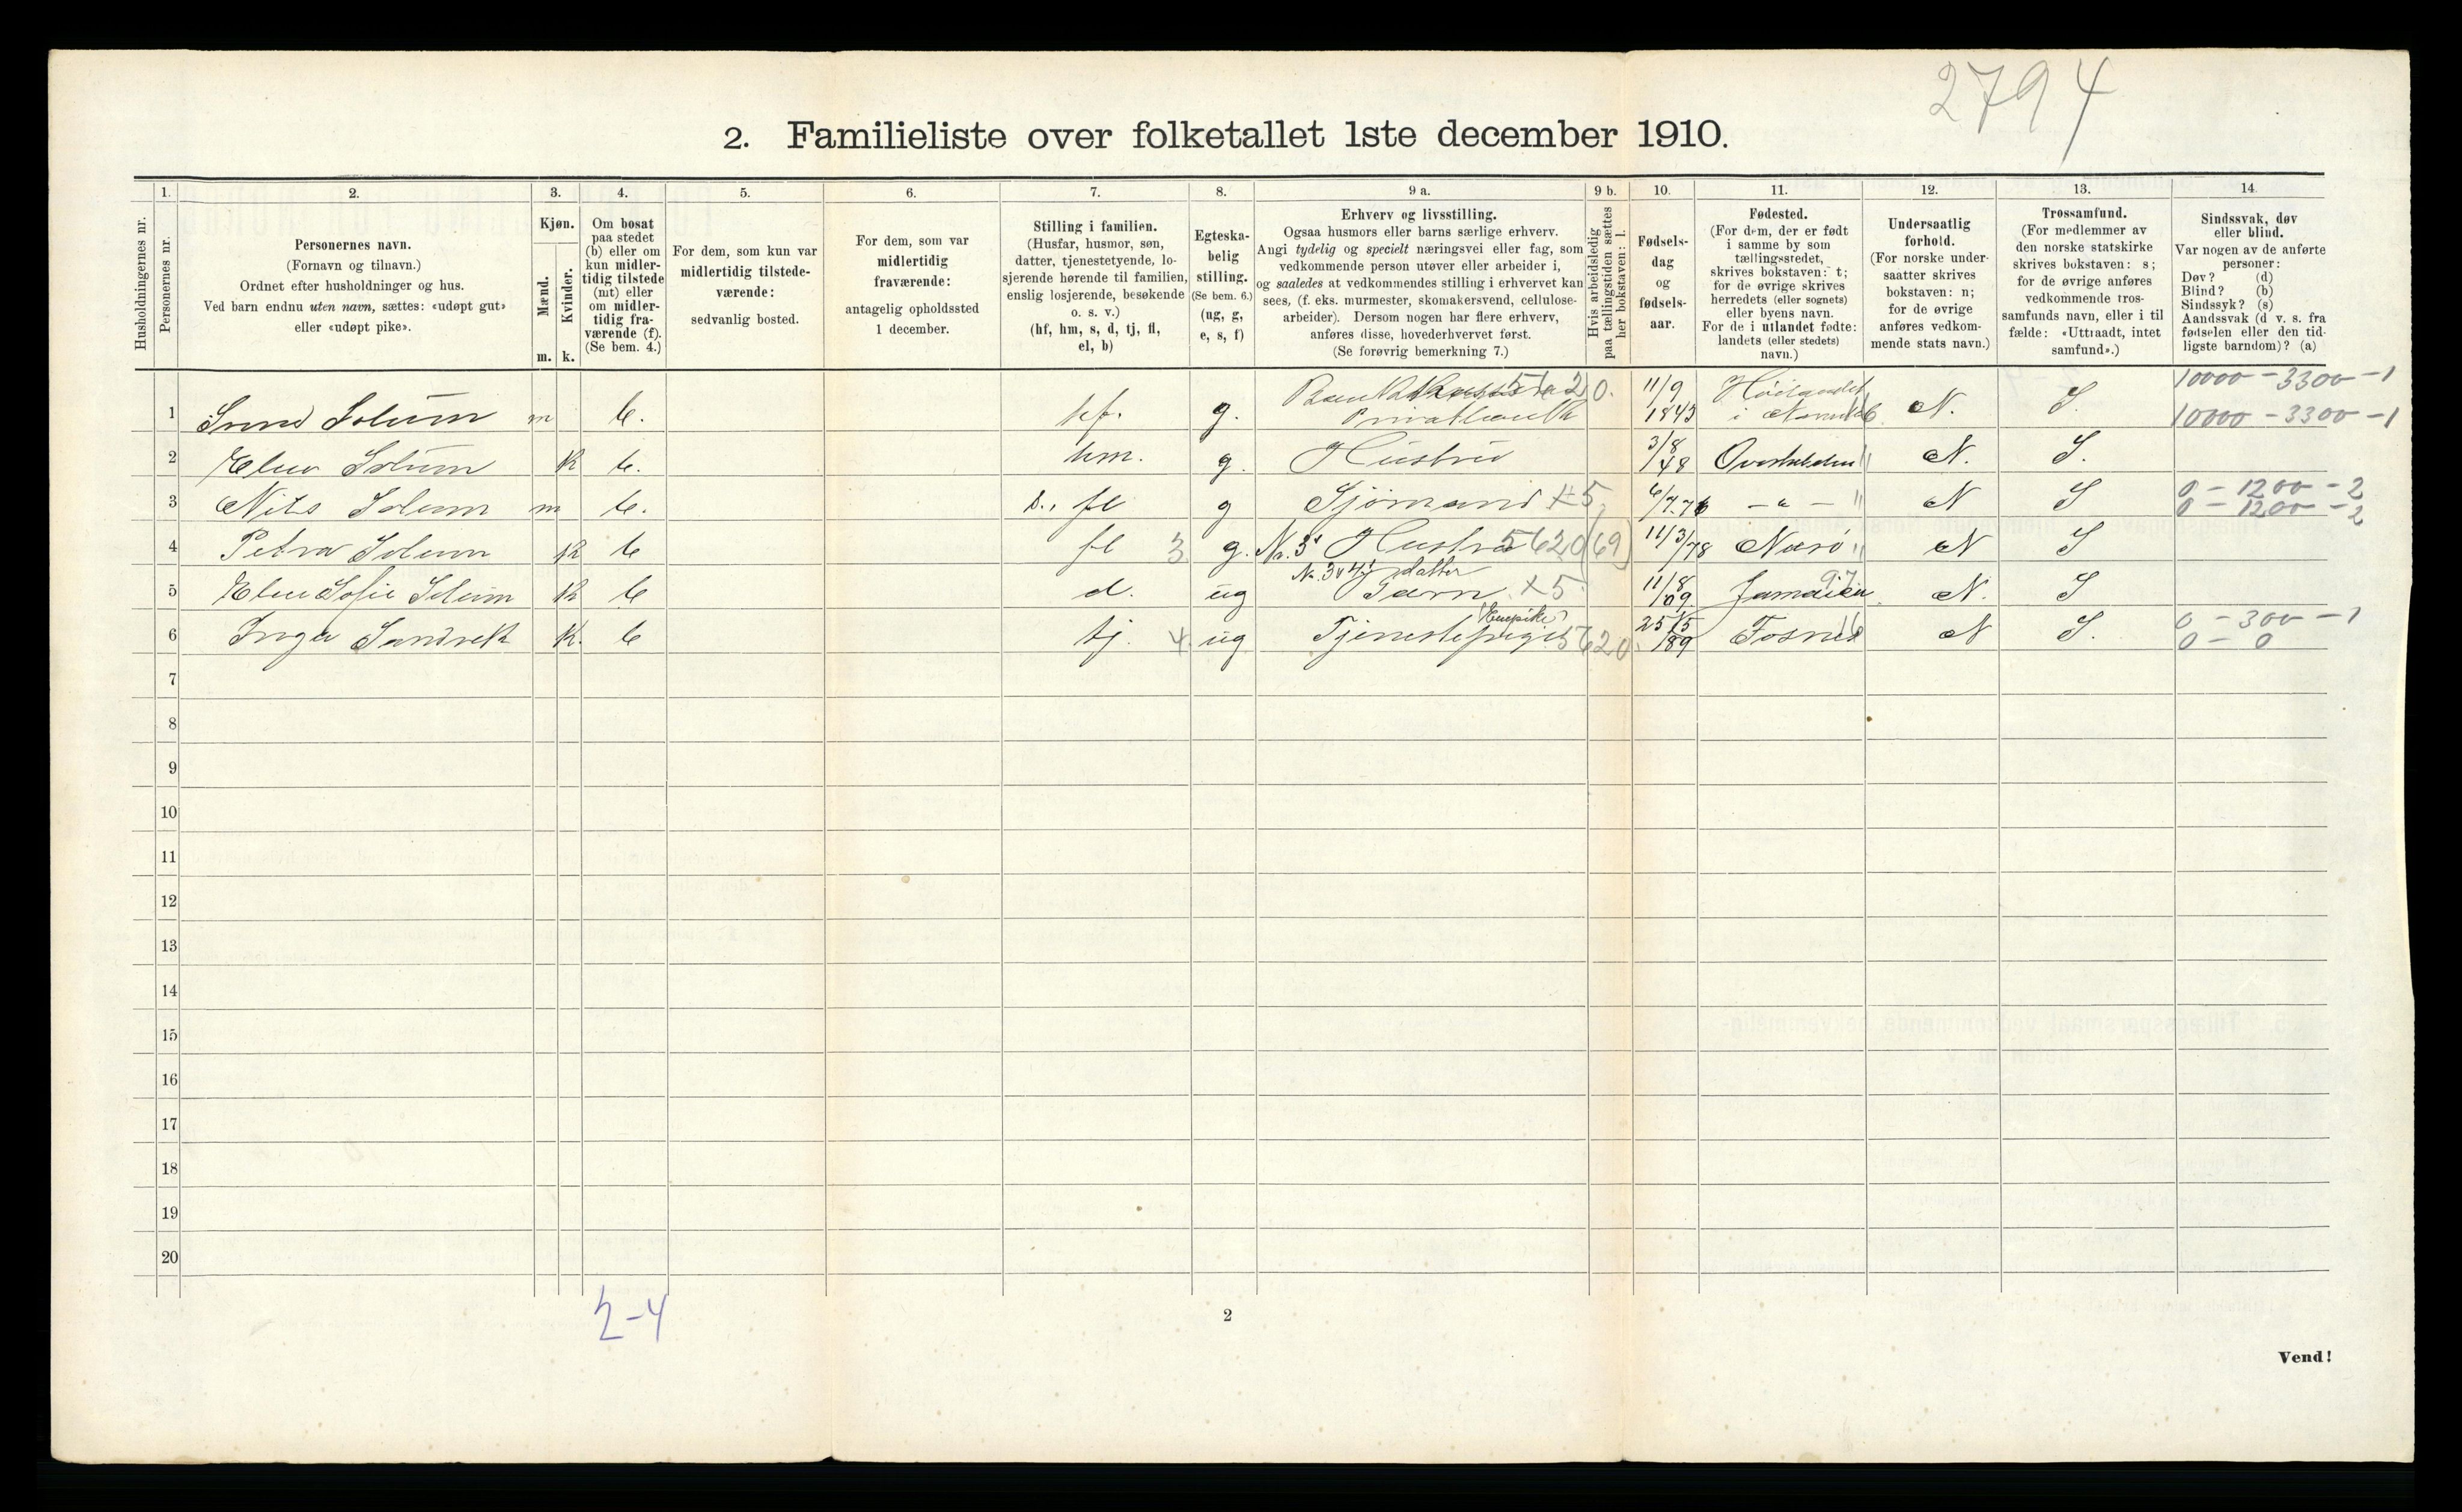 2794
2. Familieliste over folketallet 1ste december 1910.
1. 2. 3. 4. 5. 6. 7. 8. 9 a. 9 b. 10. 11. 12. 13. 14.
Husholdningernes nr.
Personernes nr.
Personernes navn.
(Fornavn og tilnavn.)
Ordnet efter husholdninger og hus.
Ved barn endnu uten navn, sættes: «udøpt gut»
eller «udøpt pike».
Kjøn.
Mænd.
Kvinder.
m. k.
Om bosat
paa stedet
(b) eller om
kun midler-
tidig tilstede
(mt) eller
om midler-
tidig fra-
værende (f).
(Se bem. 4.)
For dem, som kun var
midlertidig tilstede-
værende:
sedvanlig bosted.
For dem, som var
midlertidig
fraværende:
antagelig opholdssted
1 december.
Stilling i familien.
(Husfar, husmor, søn,
datter, tjenestetyende, lo-
sjerende hørende til familien,
enslig losjerende, besøkende
o. s. v.)
(hf, hm, s, d, tj, fl,
el, b)
Egteska-
belig
stilling.
(Se bem. 6.)
(ug, g,
e, s, f)
Erhverv og livsstilling.
Ogsaa husmors eller barns særlige erhverv.
Angi tydelig og specielt næringsvei eller fag, som
vedkommende person utøver eller arbeider i,
og saaledes at vedkommendes stilling i erhvervet kan
sees, (f. eks. murmester, skomakersvend, cellulose-
arbeider). Dersom nogen har flere erhverv,
anføres disse, hovederhvervet først.
(Se forøvrig bemerkning 7.)
Hvis arbeidsledig
paa tællingstiden sættes
her bokstaven: l.
Fødsels-
dag
og
fødsels-
aar.
Fødested.
(For dem, der er født
i samme by som
tællingsstedet,
skrives bokstaven: t;
for de øvrige skrives
herredets (eller sognets)
eller byens navn.
For de i utlandet fødte:
landets (eller stedets)
navn.)
Undersaatlig
forhold.
(For norske under-
saatter skrives
bokstaven: n;
for de øvrige
anføres vedkom-
mende stats navn.)
Trossamfund.
(For medlemmer av
den norske statskirke
skrives bokstaven: s;
for de øvrige anføres
vedkommende tros-
samfunds navn, eller i til
fælde: «Uttraadt, intet
samfund».)
Sindssvak, døv
eller blind.
Var nogen av de anførte
personer:
Døv? (d)
Blind? (b)
Sindssyk? (s)
Aandssvak (d v. s. fra
fødselen eller den tid-
ligste barndom)? (a)
11/9 10000 - 3300 - 1
1 Solum m b. hf. g. Privatbank 1843 N. S. 10000 - 3300 - 1
2 Solum K b. hm. g. Hustru 3/8 48 N. S.
3 Nils Solum m b. s., fl g Sjømand X 5 6/7.76 - " - N S 0 - 1200 - 2
0 - 1200 - 2
4 Petra Solum K b fl 3 g. Nr. 3s Hustru 5620 (69) 11/3/78 Nærø N S
No. 3 & 4s datter
5 Sofie Solum K b d. ug Barn X 5 11/8 09. Jamaica N. S
(Enepike)
6 Inga K. b tj. 4. ug Tjenestepige 5620. 25/5/89 Fosnes N S. 0 - 300 - 1
0 - 0
7
8
9
10
11
12
13
14
15
16
17
18
19
20
2-4
2
Vend!